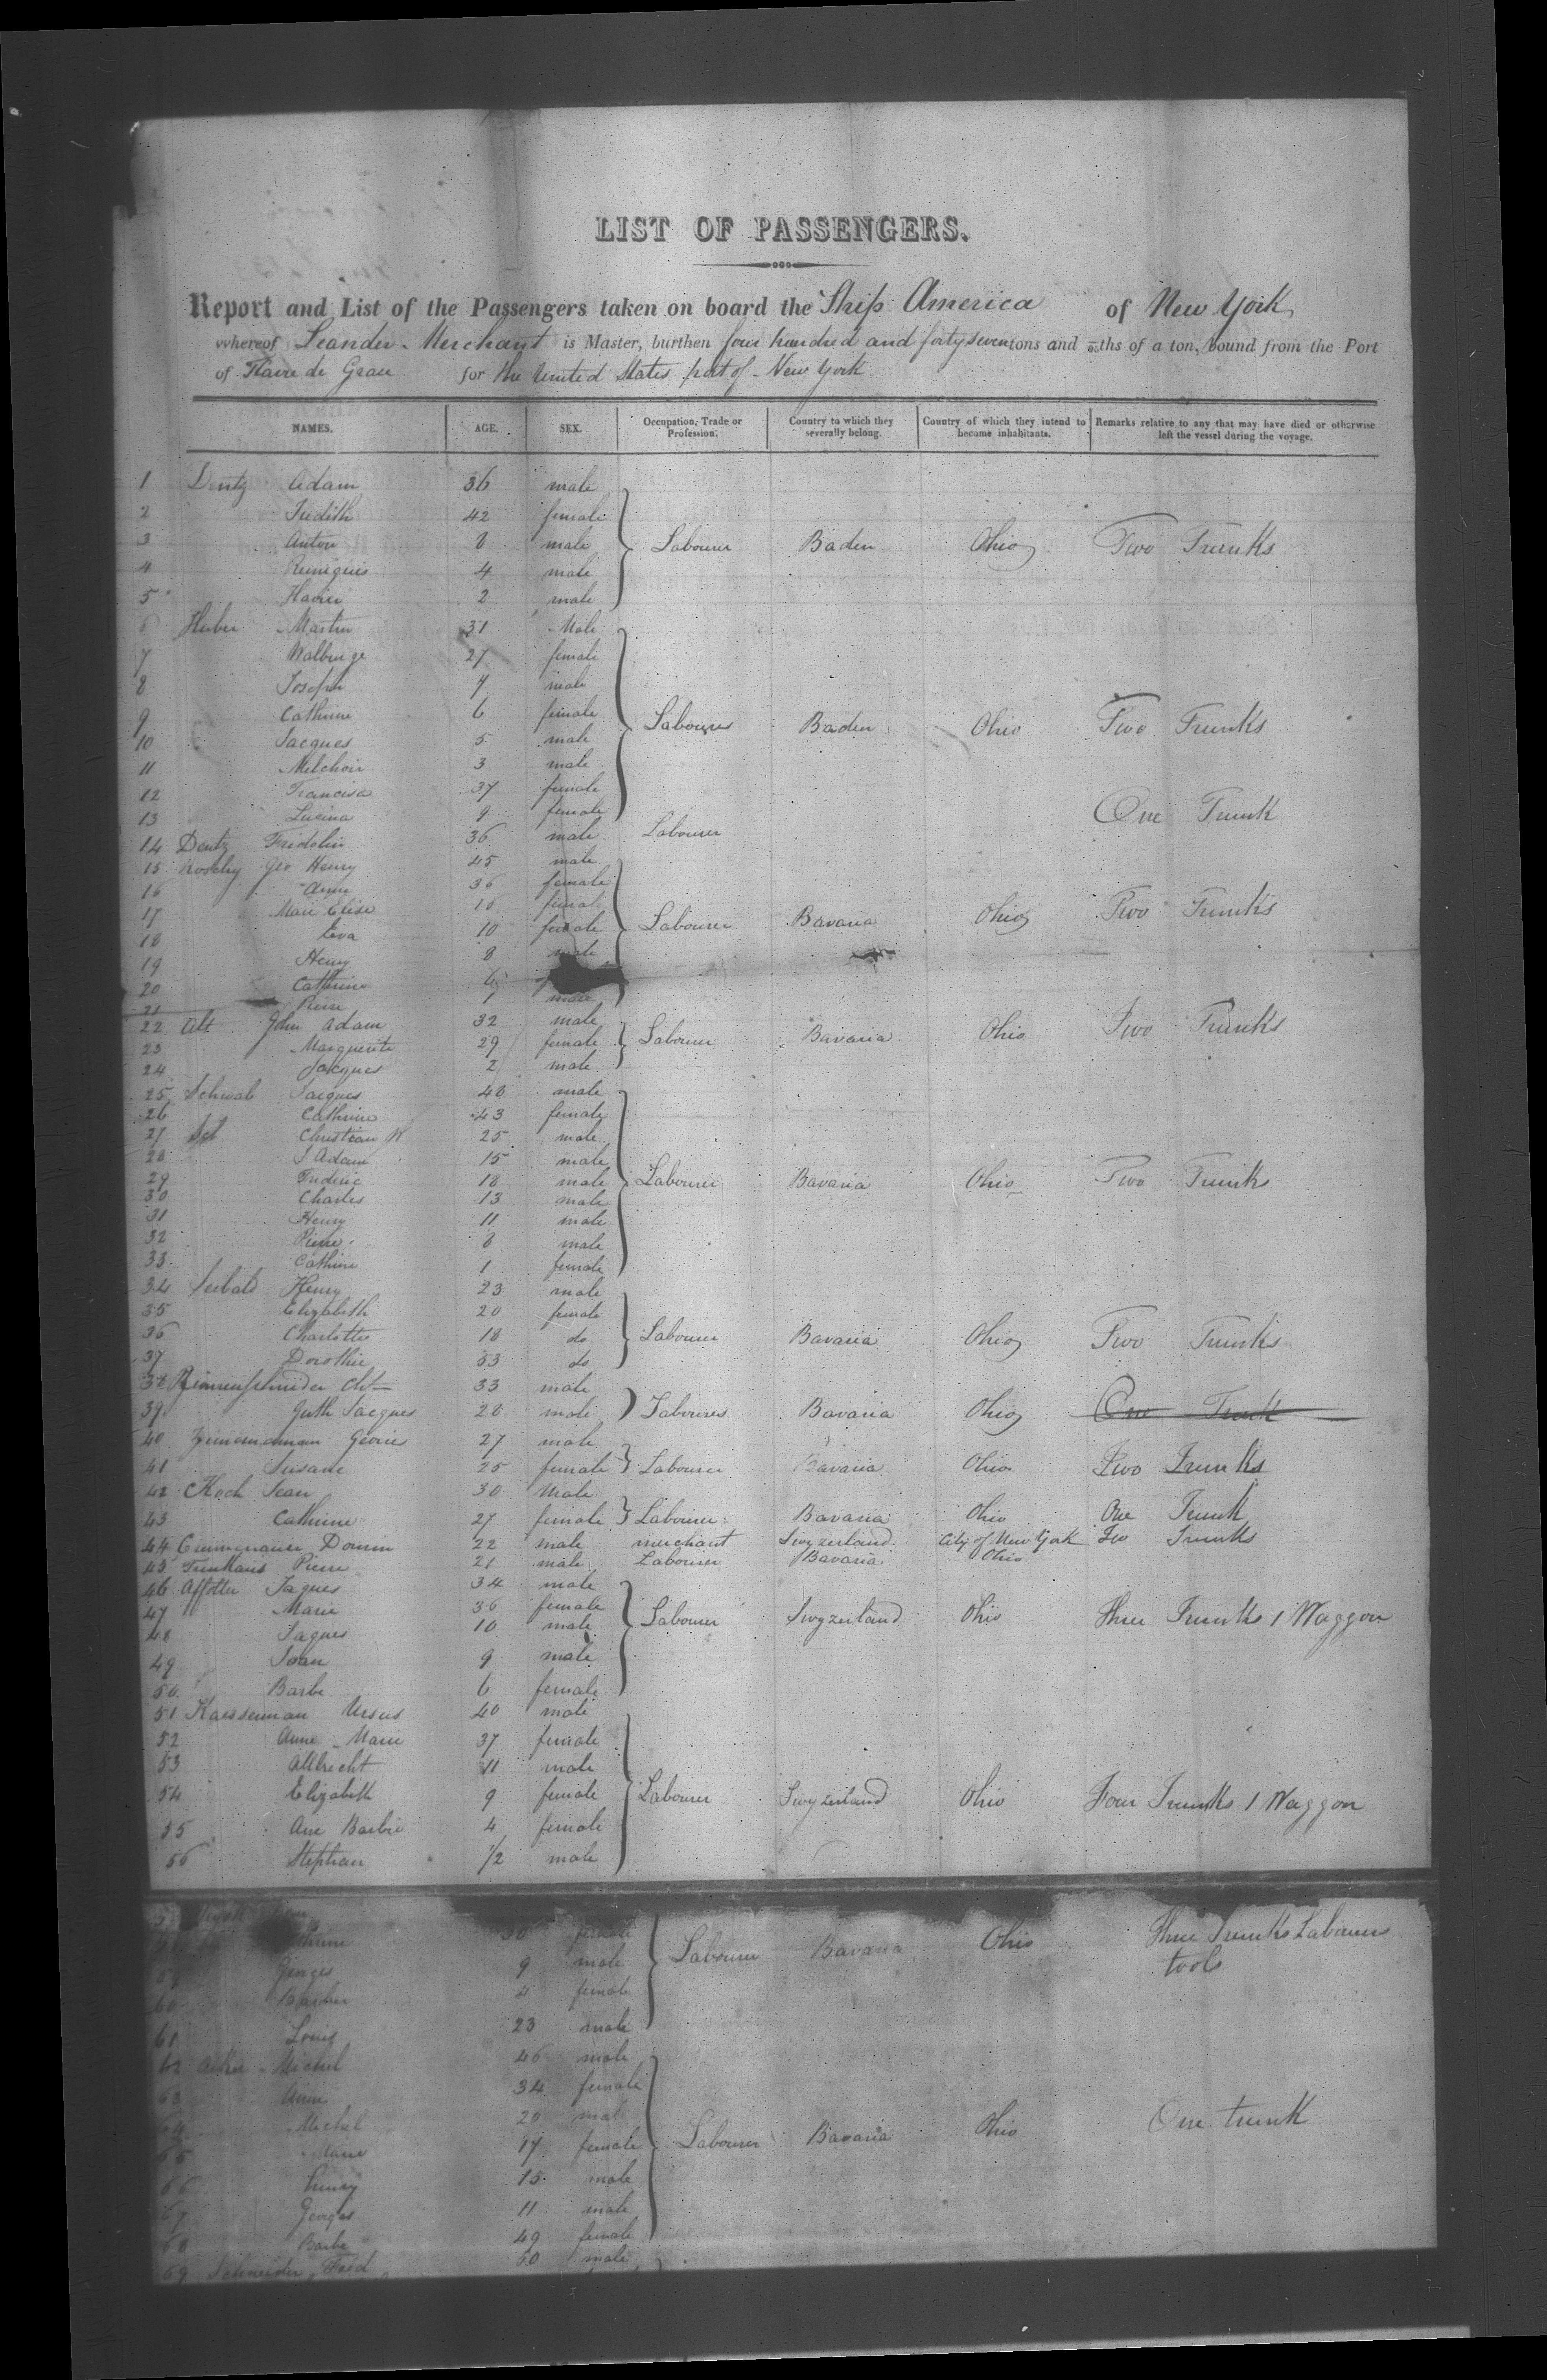 LIST OF PASSENGERS.
Report and List of the Passengers taken on board the Ship America of New York
whereof Leander Merchant is Master, burthen four hundred and forty seven tons and ths of a ton, bound from the Port
of Havre de Grace for the United States port of New York
NAMES. AGE. SEX. Occupation, Trade or Profession. Country to which they severally belong. Country of which they intend to become inhabitants. Remarks relative to any that may have died or otherwise left the vessel during the voyage.
1 Dentz Adam 36 male
2 Judith 42 female
3 Anton 8 male Labourer Baden Ohio Two Trunks
4 4 male
5 2 male
6 Huber Martin 31 Male
7 Walburge 27 female
8 Joseph 7 male
9 Cathrine 6 female Labourer Baden Ohio Two Trunks
10 Jacques 5 male
11 Melchoir 3 male
12 Francisca 37 female
13 Lucina 9 female One Trunk
14 Dentz Fridolin 36 male Labourer
15 Geo Henry 45 male
16 Anne 36 female
17 Marie Elise 10 female
18 Eva 10 female Labourer Bavaria Ohio Two Trunks
19 Henry 8 male
20 Cathrine 6
21 Pierre 1 male
22 Alt John Adam 32 male
23 Marguerite 29 female Labourer Bavaria Ohio Two Trunks
24 Jacques 2 male
25 Schwab Jacques 48 male
26 Cathrine 43 female
27 Christian 25 male
28 J Adam 15 male
29 Frederic 18 male Labourer Bavaria Ohio Two Trunks
30 Charles 13 male
31 Henry 11 male
32 Pierre 8 male
33 Cathrine 1 female
34 Seibald Henry 23 male
35 Elizabeth 20 female
36 Charlotte 18 do Labourer Bavaria Ohio Two Trunks
37 Dorothie 53 do
38 33 male
39 Guth Jacques 28 male Labourer Bavaria Ohio One Trunk
40 27 male
41 Susane 25 female Labourer Bavaria Ohio Two Trunks
42 Koch Jean 30 Male
43 Cathrine 27 female Labourer Bavaria Ohio One Trunk
44 22 male merchant Swyzerland City of New York Two Trunks
45 Pierre 21 male Labourer Bavaria Ohio
46 Affolter Jaques 34 male
47 Marie 36 female
48 Jaques 10 male Labourer Swyzerland Ohio three Trunks 1 Waggon
49 Jean 9 male
50 Barbe 6 female
51 Kaesserman Ursus 40 male
52 Anne Marie 37 female
53 Allbrecht 11 male
54 Elizabeth 9 female Labourer Swyzerland Ohio Four Trunks 1 Waggon
55 Ane Barbie 4 female
56 Stephan 1/2 male
female Labourer Bavaria Ohio three Trunks Labourers
Georges 9 male tools
60 4 female
61 Louis 23 male
62 Michel 46 male
63 Anne 34 female
64 Michel 20 male
65 Marie 17 female Labourer Bavaria Ohio One trunk
66 Henry 15 male
67 Georges 11 male
68 Barbe 49 female
69 Schneider 60 male